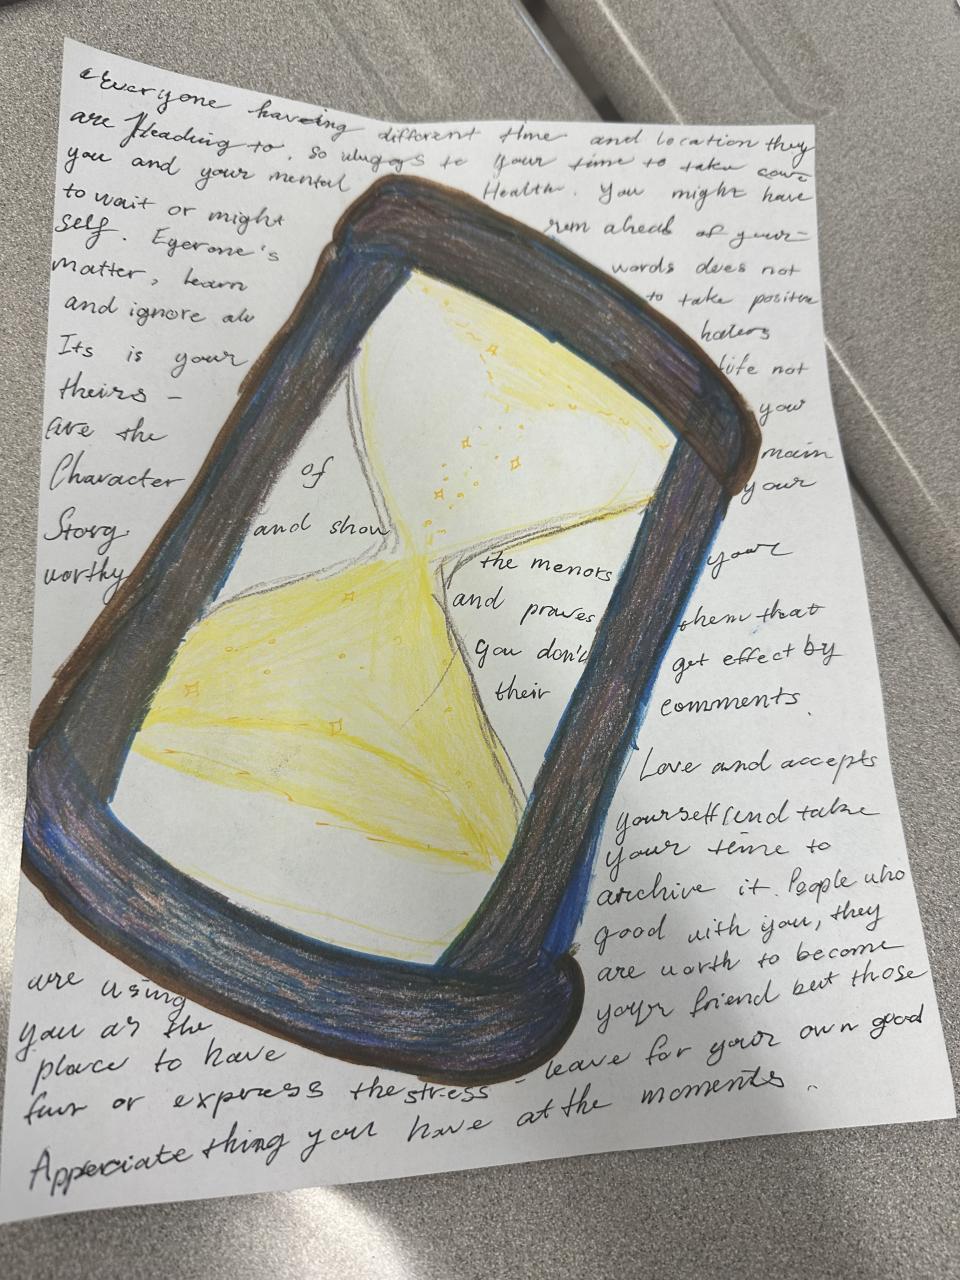 Everyone haveing different time and location they
are Heading to. So always to your time to take care
you and your mental Health. You might have
to wait or might run ahead of your-
self. Egerone's words does not
matter, learn to take positive
and ignore all haters
Its is your life not
theirs - you
are the main
Character of your
Story and show your
worthy the menors
and proves them that
you don't get effect by
their comments.
Love and accepts
yourself and take
your time to
archive it. People who
good with you, they
are worth to become
your friend but those
are using
you as the
place to have
fun or express the stress - leave for your own good
Apperciate thing you have at the moments.